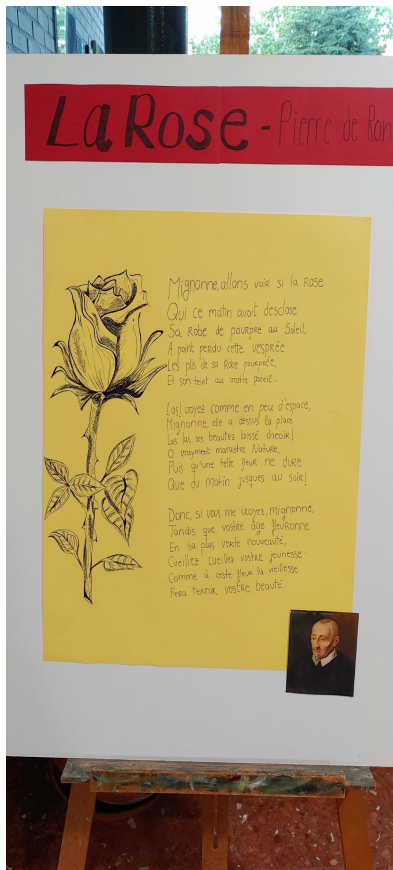 La Rose - Pierre de Ron
Mignonne, allons voir si la rose
Qui ce matin avoit desclose
Sa Robe de pourpre au Soleil,
A point perdu cette vesprée
Les plis de sa Robe pourprée,
Et son teint au vostre pareil.
Las! voyez comme en peu d'espace,
Mignonne, elle a dessus la place
Las las ses beautez laissé cheoir!
O vrayment marastre Nature,
Puis qu'une telle fleur ne dure
Que du matin jusques au soir!
Donc, si vous me croyez, mignonne,
Tandis que vostre âge fleuronne
En sa plus verte nouveauté,
Cueillez cueillez vostre jeunesse:
Comme à ceste fleur la vieillesse
Fera ternir vostre beauté.